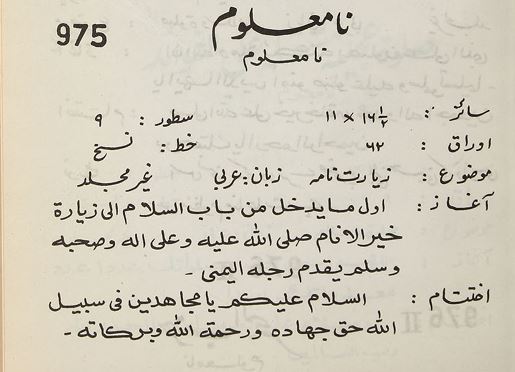 975
نا معلوم
نا معلوم
سائز : ۱۶½ × ۱۱ سطور : ۹
اوراق : ۶۲ خط : نسخ
موضوع : زیارت نامہ زبان : عربی غیر مجلد
آغاز : اول ما یدخل من باب السلام الی زیارۃ
خیر الانام صلی اللہ علیه وعلی اله وصحبه
وسلم یقدم رجله الیمنی ۔
اختتام : السلام علیکم یا مجاهدین فی سبیل
اللہ حق جهاده ورحمة اللہ وبرکاته ۔